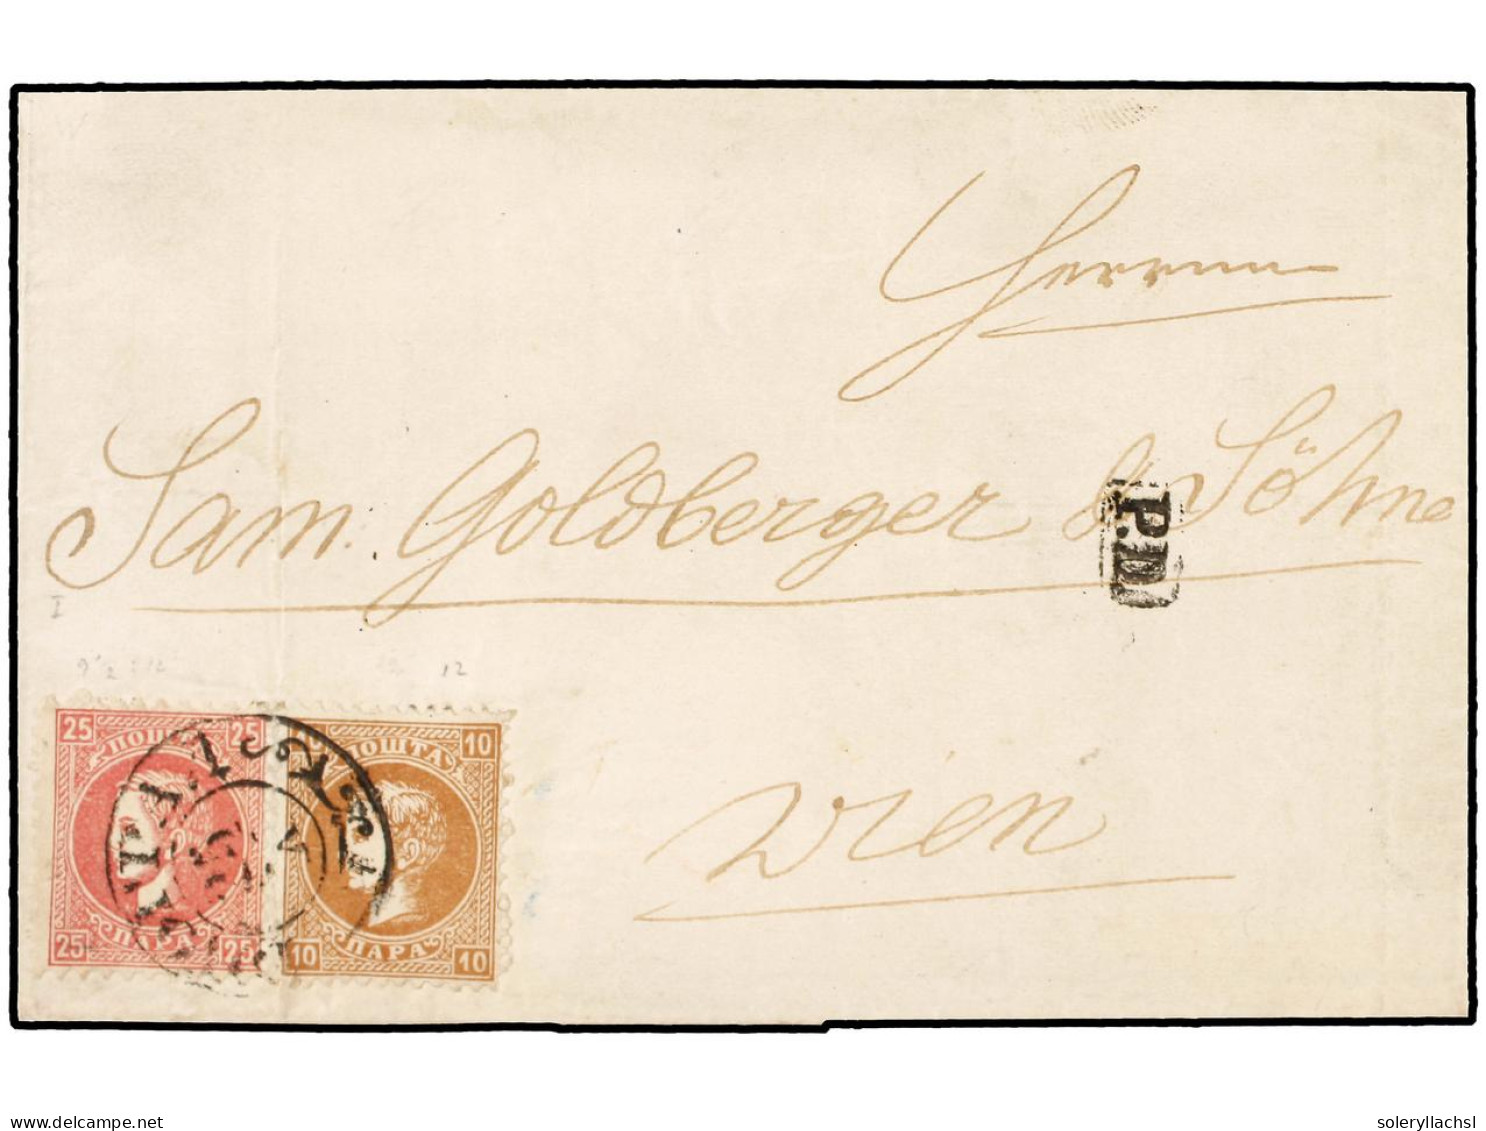 Herrnn
Sam. Goldberger & Söhne
P.D.
I
9½ : 12
12
25 25
ПОШТА
ПАРА
25 25
10
ПОШТА
ПАРА
10 10
Wien
delcampe.net
soleryllachsl